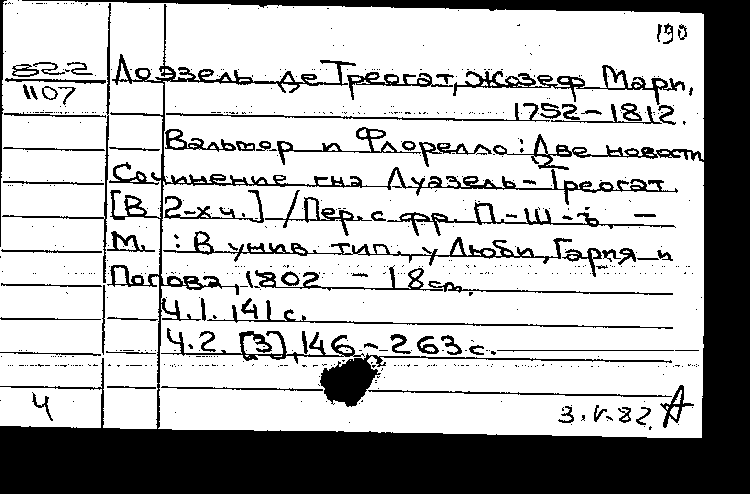 190
S22 Лоэзель де Треогат, Жозеф Мари,
1107 1752-1812.
Вальтер и Флорелло: Две новости
Сочинение гна Луазель-Треогат.
[В 2-х ч.] / Пер. с фр. П.-Ш-ъ. —
М. : В унив. тип., у Люби, Гария и
Попова, 1802. - 18 см.
Ч.1. 141 с.
Ч.2. [3], 146-263 с.
Ч 3.V.82.